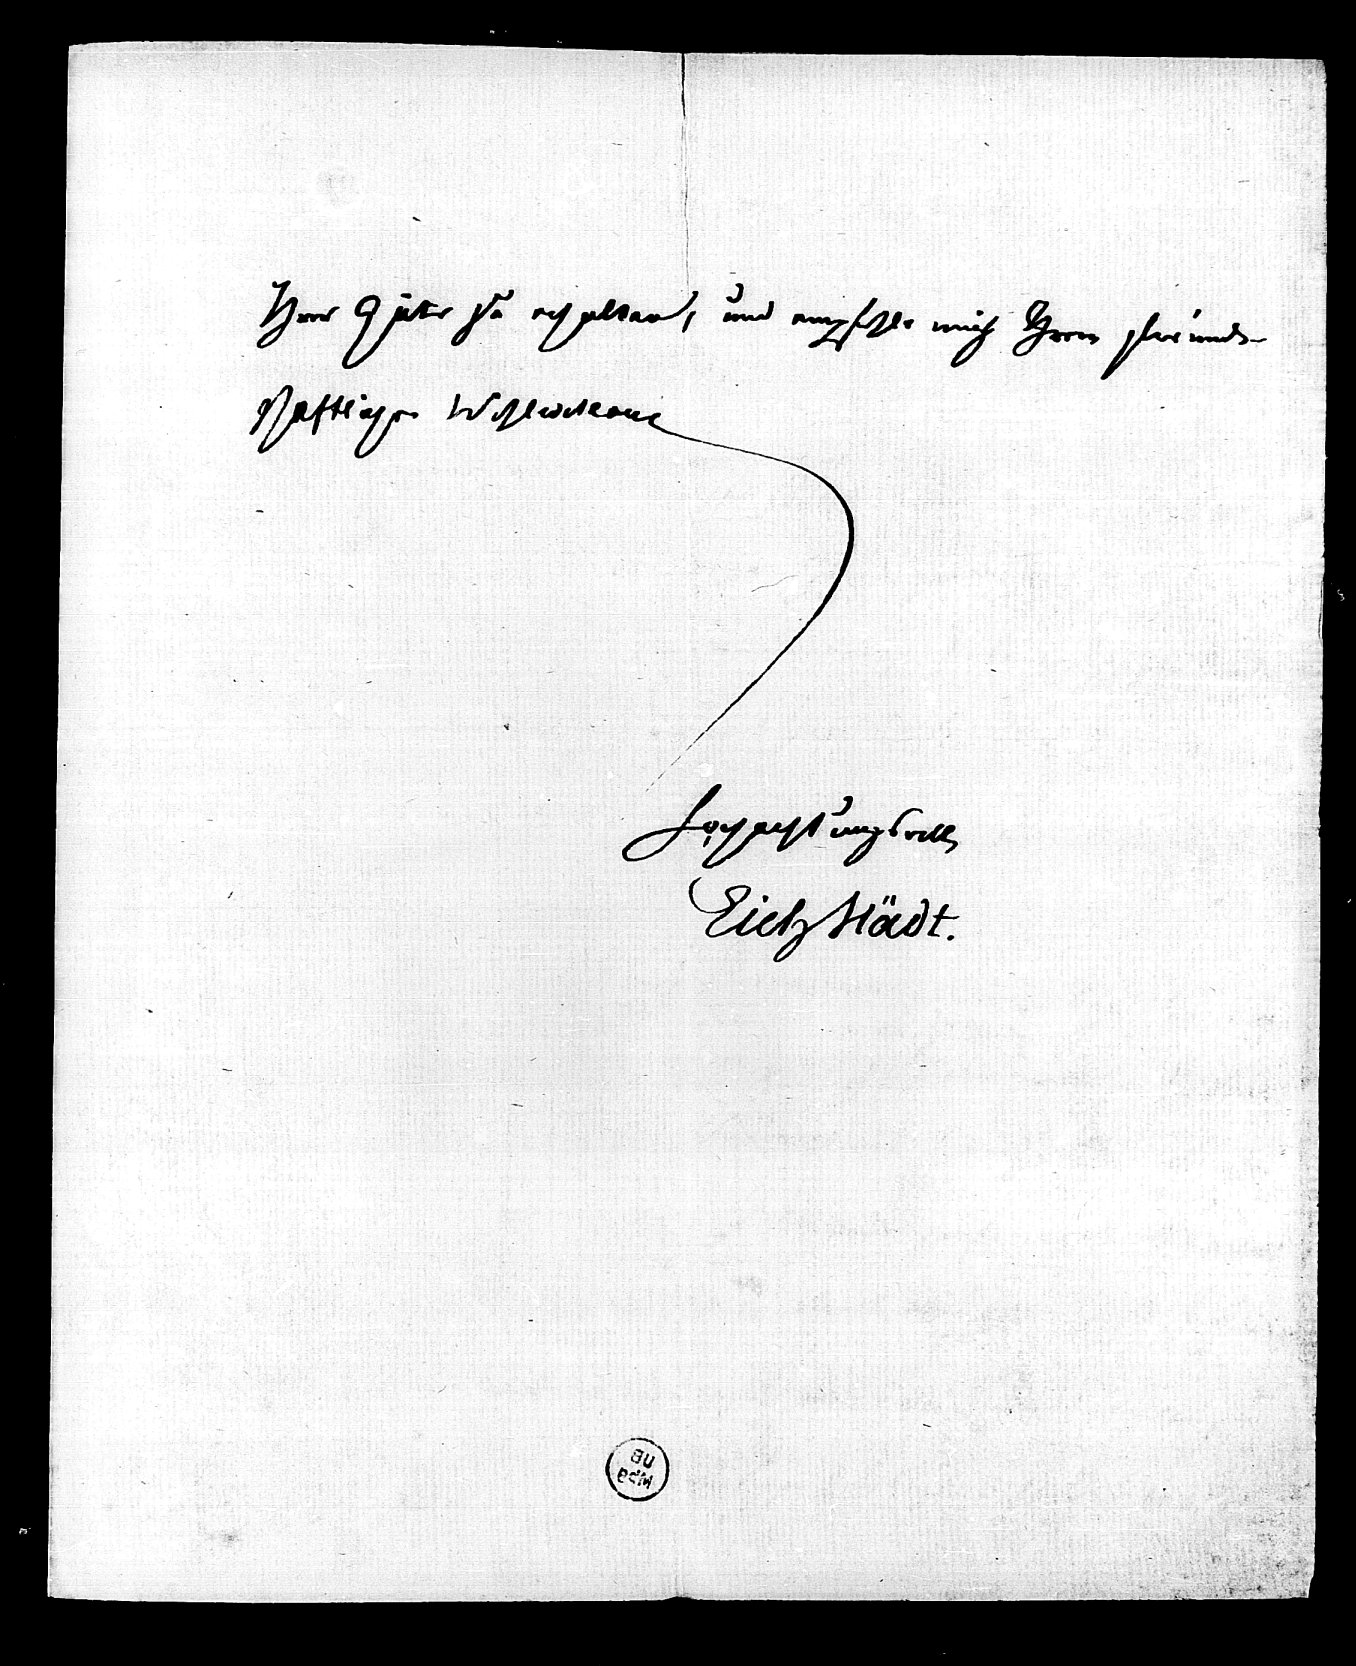 Ihrer Güte zu erhalten, und empfehle mich Ihrem freund-
schaftlichen Wohlwollen
Hochachtungsvoll
Eichstädt.
UB